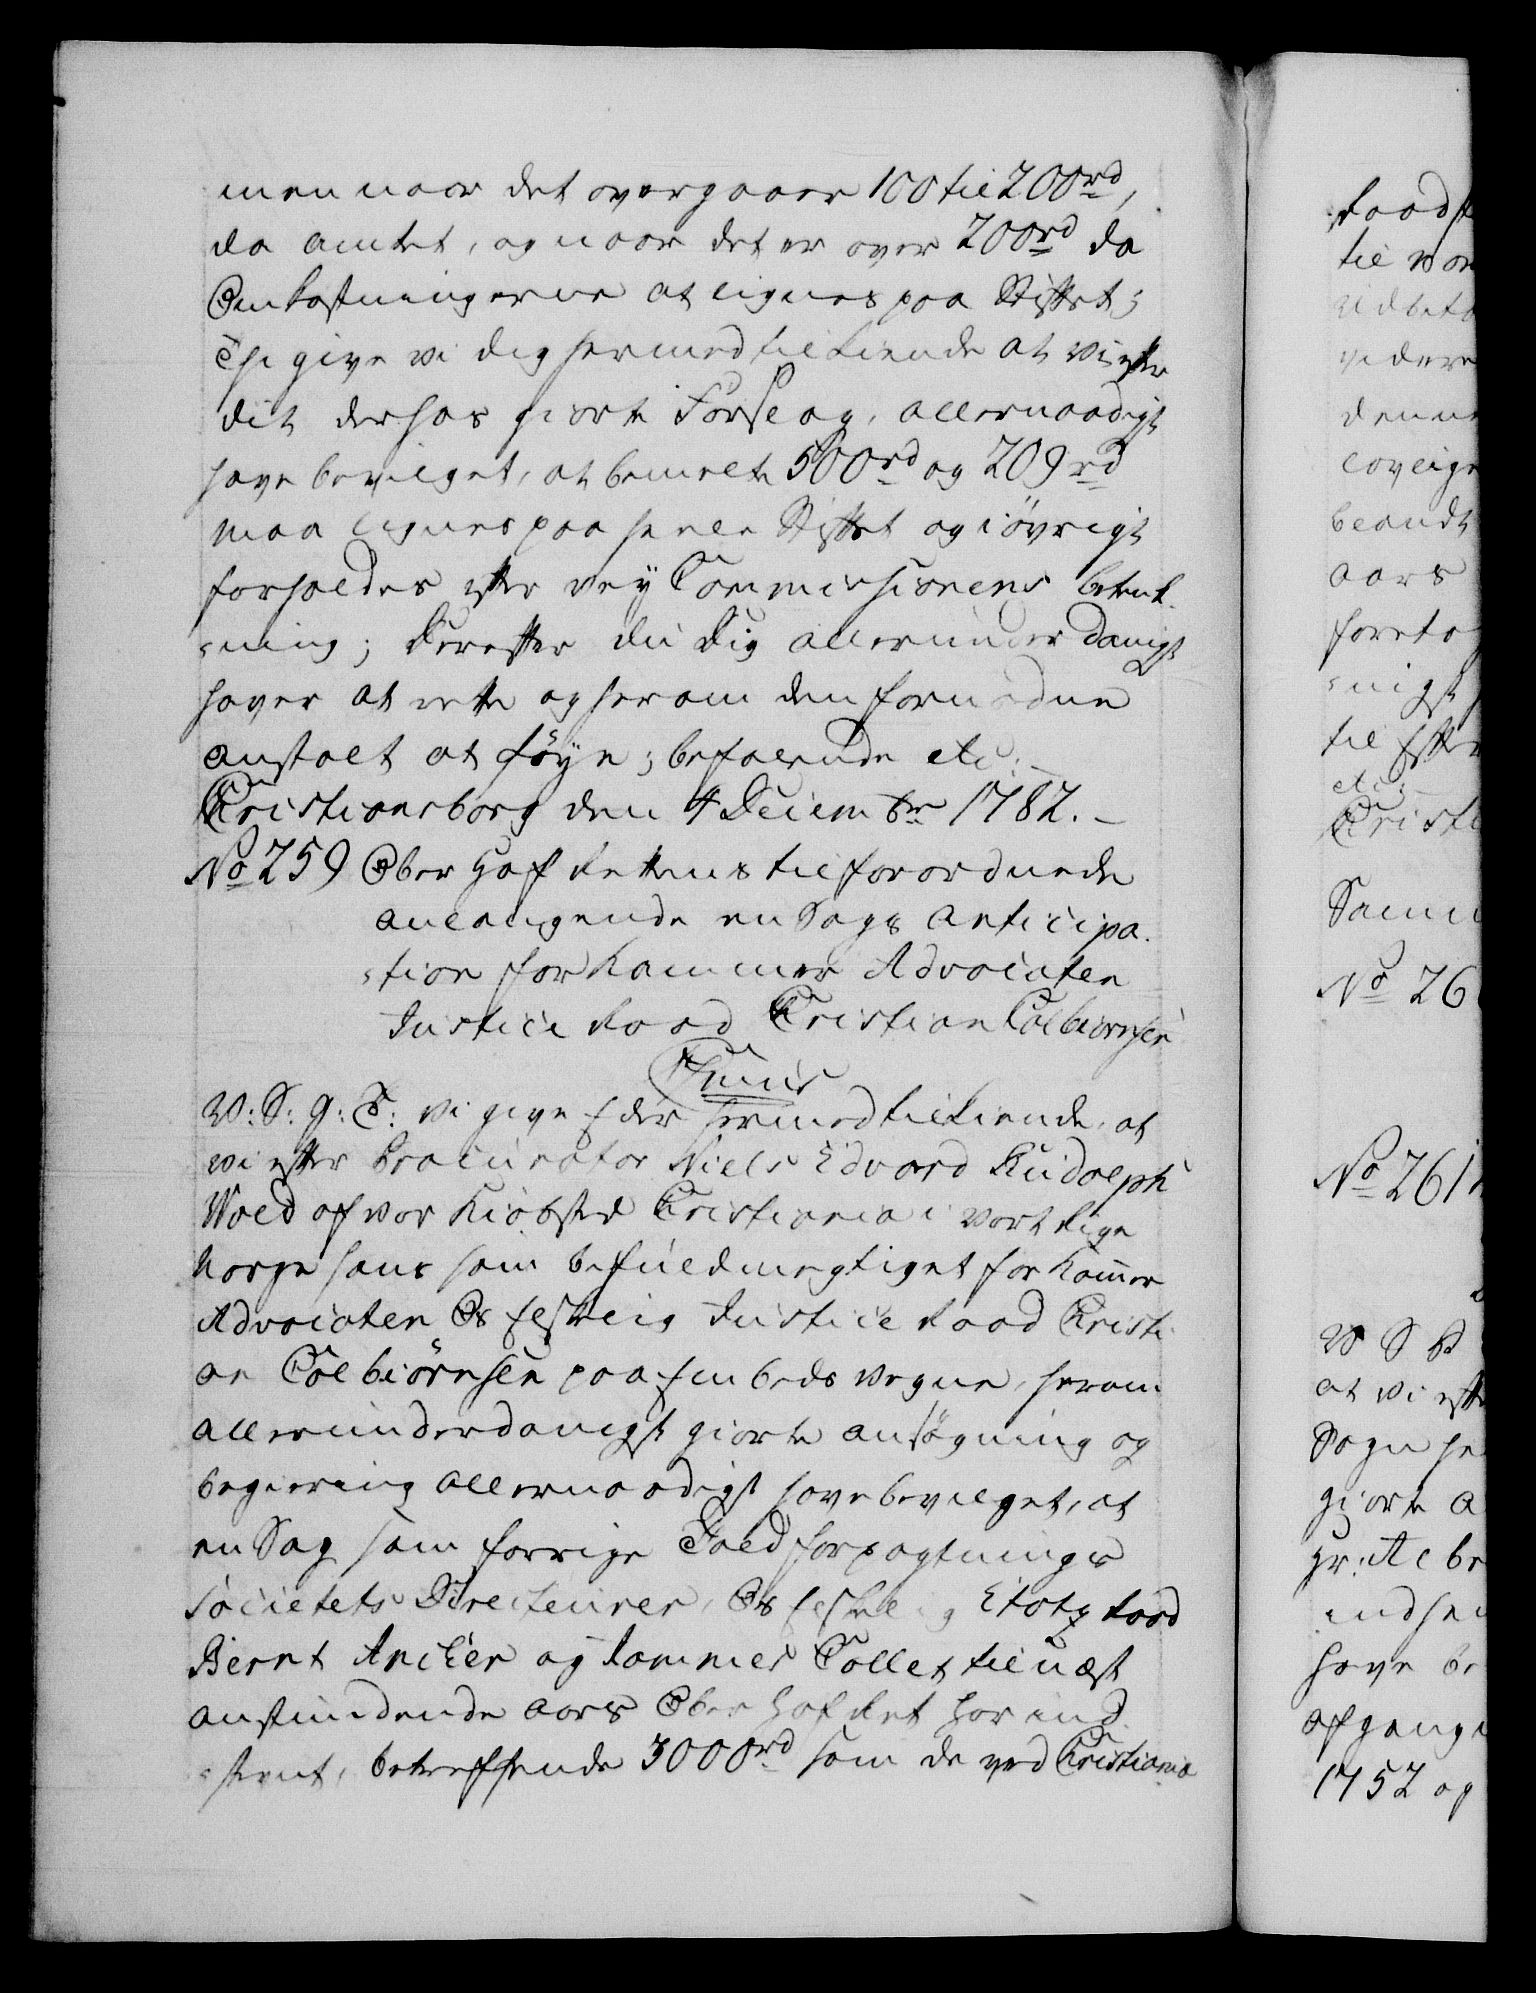 men naar det overgaaer 100 til 200rd,
da Amtet, og naar det er over 200rd da
Omkostningerne at lignes paa Stiftet;
Thi give vi dig hermed tilkiende at vi efter
dit derhos giorte Forslag, allernaadigst
have bevilget, at bemelte 500rd og 209rd
maa lignes paa hele Stiftet og i øvrigt
forholdes efter Vey Commissionens betænk-
-ning; Derefter du dig allerunderdanigst
haver at rette og herom den fornødne
anstalt at føye; befalende etc: -
Christiansborg den 4 Decembr 1782. -
No 259 Ober Hof Rettens tilforordnede
anlangende en Sags Anticipa-
-tion for Kammer Advocaten
Justice Raad Christian Colbiørnsen
W: S: g: T: vi give Eder hermed tilkiende, at
vi efter Procurator Niels Edvard Rudolph
Wold af vor Kiøbsted Christiania i vort Rige
Norge hans som befuldmægtiget for Kammer
Advocaten Os Elskelig Justice Raad Christi-
an Colbiørnsen paa Embeds vegne, herom
allerunderdanigst giorte ansøgning og
begiering allernaadigst have bevilget, at
en Sag som forrige Toldforpagtnings
Societets Directeurer, Os Elskelig Etatz Raad
Bernt Ancher og Kammer Collet til næst
anstundende Aars Ober Hof Ret har ind-
-stevnt, betreffende 3000rd som de ved Christiania
Raadst
til vor
Udbeta
videre
denne
lovlige
beandt
Aars
foretag
-nigst
til Efter
etc: -
Christi
Samm
No 26
No 261
W S G
at vi efter
Sogn he
giorte A
indsen
have be
afgangn
1752 og